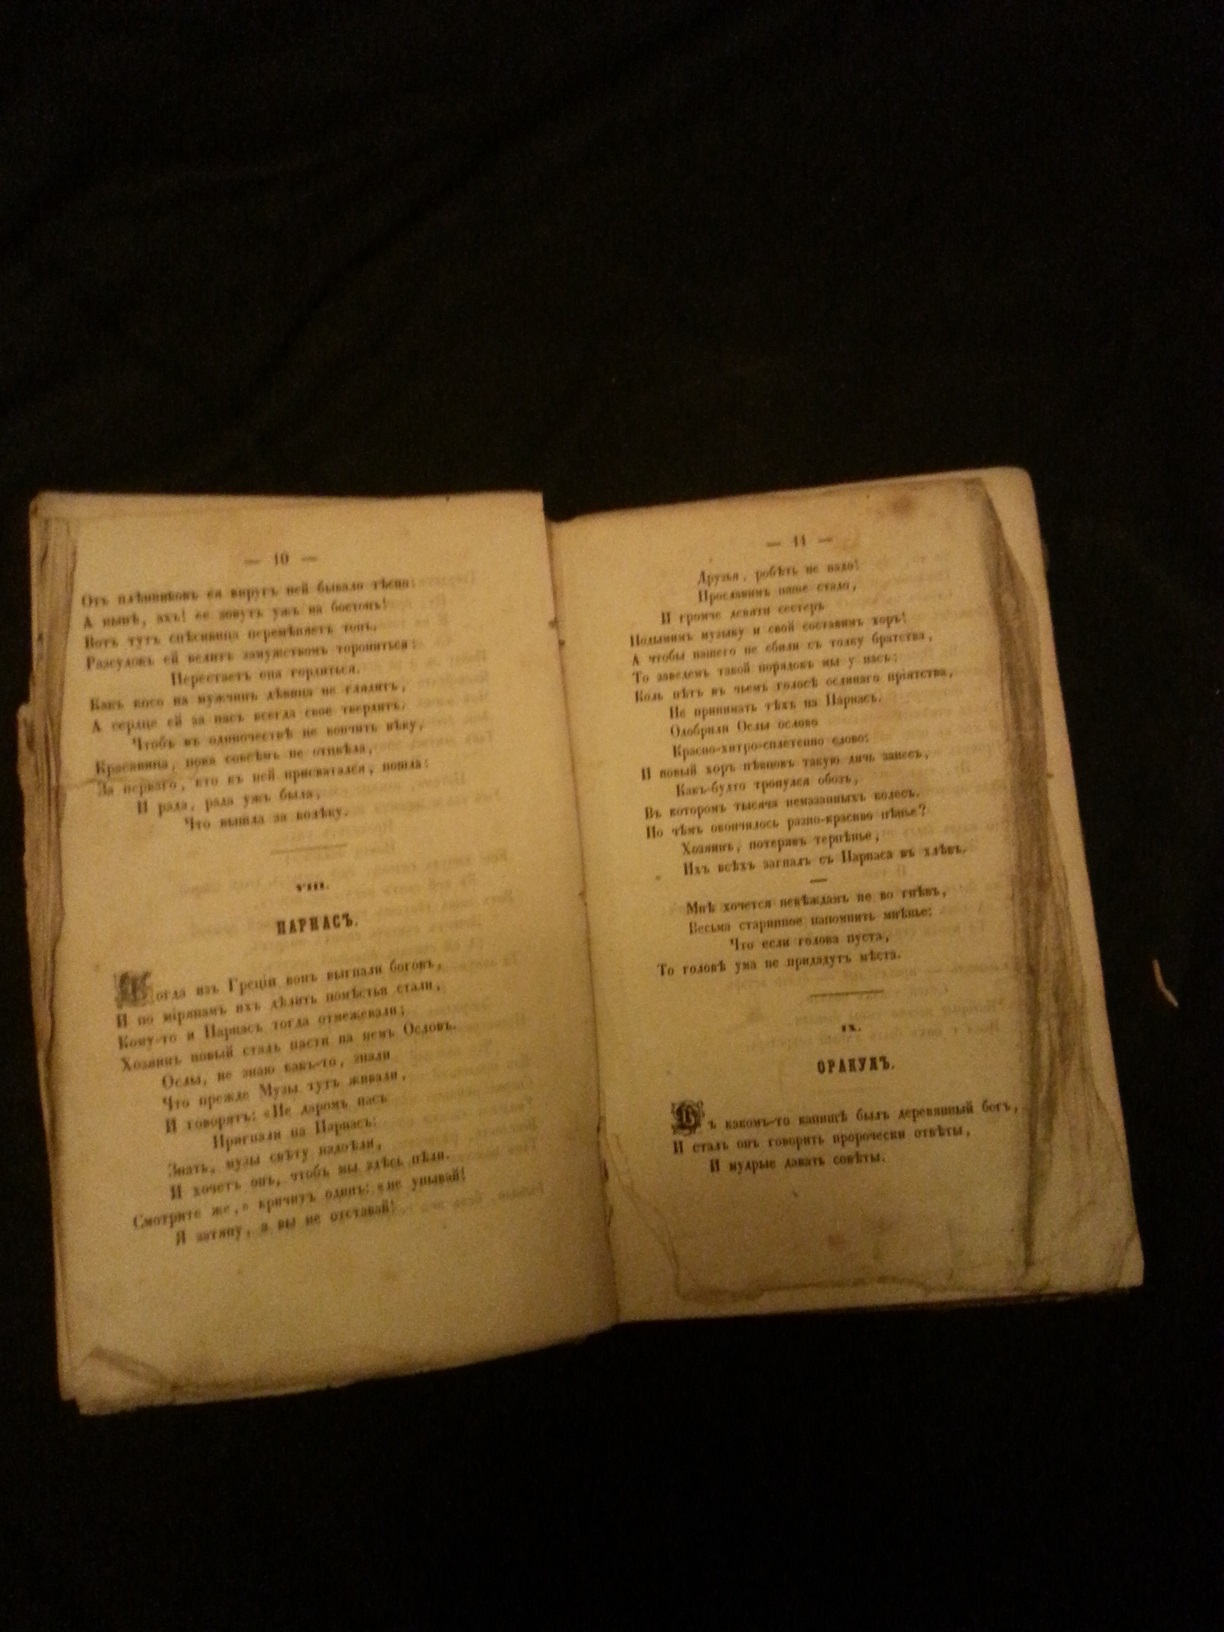 — 10 —
Отъ плѣнниковъ ея вкругъ ней бывало тѣсно:
А нынѣ, ахъ! ее зовутъ ужъ на бостонъ!
Вотъ тутъ спѣсивица перемѣняетъ тонъ.
Разсудокъ ей велитъ замужствомъ торопиться:
Перестаетъ она гордиться.
Какъ косо на мужчинъ дѣвица не глядитъ,
А сердце ей за насъ всегда свое твердитъ.
Чтобъ въ одиночествѣ не кончить вѣку,
Красавица, пока совсѣмъ не отцвѣла,
За перваго, кто къ ней присватался, пошла:
И рада, рада ужъ была,
Что вышла за калѣку.
VIII.
ПАРНАСЪ.
Когда изъ Греціи вонъ выгнали боговъ,
И по мірянамъ ихъ дѣлить помѣстья стали,
Кому-то и Парнасъ тогда отмежевали;
Хозяинъ новый сталъ пасти на немъ Ословъ.
Ослы, не знаю какъ-то, знали
Что прежде Музы тутъ живали,
И говорятъ: «Не даромъ насъ
Пригнали на Парнасъ:
Знать, музы свѣту надоѣли,
И хочетъ онъ, чтобъ мы здѣсь пѣли.
Смотрите же,» кричитъ одинъ: «не унывай!
Я затяну, а вы не отставай!
— 11 —
Друзья, робѣть не надо!
Прославимъ наше стадо,
И громче девяти сестеръ
Подымимъ музыку и свой составимъ хоръ!
А чтобы нашего не сбили съ толку братства,
То заведемъ такой порядокъ мы у насъ:
Коль нѣтъ въ чьемъ голосѣ ослинаго пріятства,
Не принимать тѣхъ на Парнасъ.
Одобрили Ослы ослово
Красно-хитро-сплетенно слово:
И новый хоръ пѣвцовъ такую дичь занесъ,
Какъ-будто тронулся обозъ,
Въ которомъ тысяча немазанныхъ колесъ.
Но чѣмъ окончилось разно-красиво пѣнье?
Хозяинъ, потерявъ терпѣнье,
Ихъ всѣхъ загналъ съ Парнаса въ хлѣвъ.
Мнѣ хочется невѣждамъ не во гнѣвъ,
Весьма старинное напомнить мнѣнье:
Что если голова пуста,
То головѣ ума не придадутъ мѣста.
IX.
ОРАКУЛЪ.
Въ какомъ-то капищѣ былъ деревянный богъ,
И сталъ онъ говорить пророчески отвѣты,
И мудрые давать совѣты.